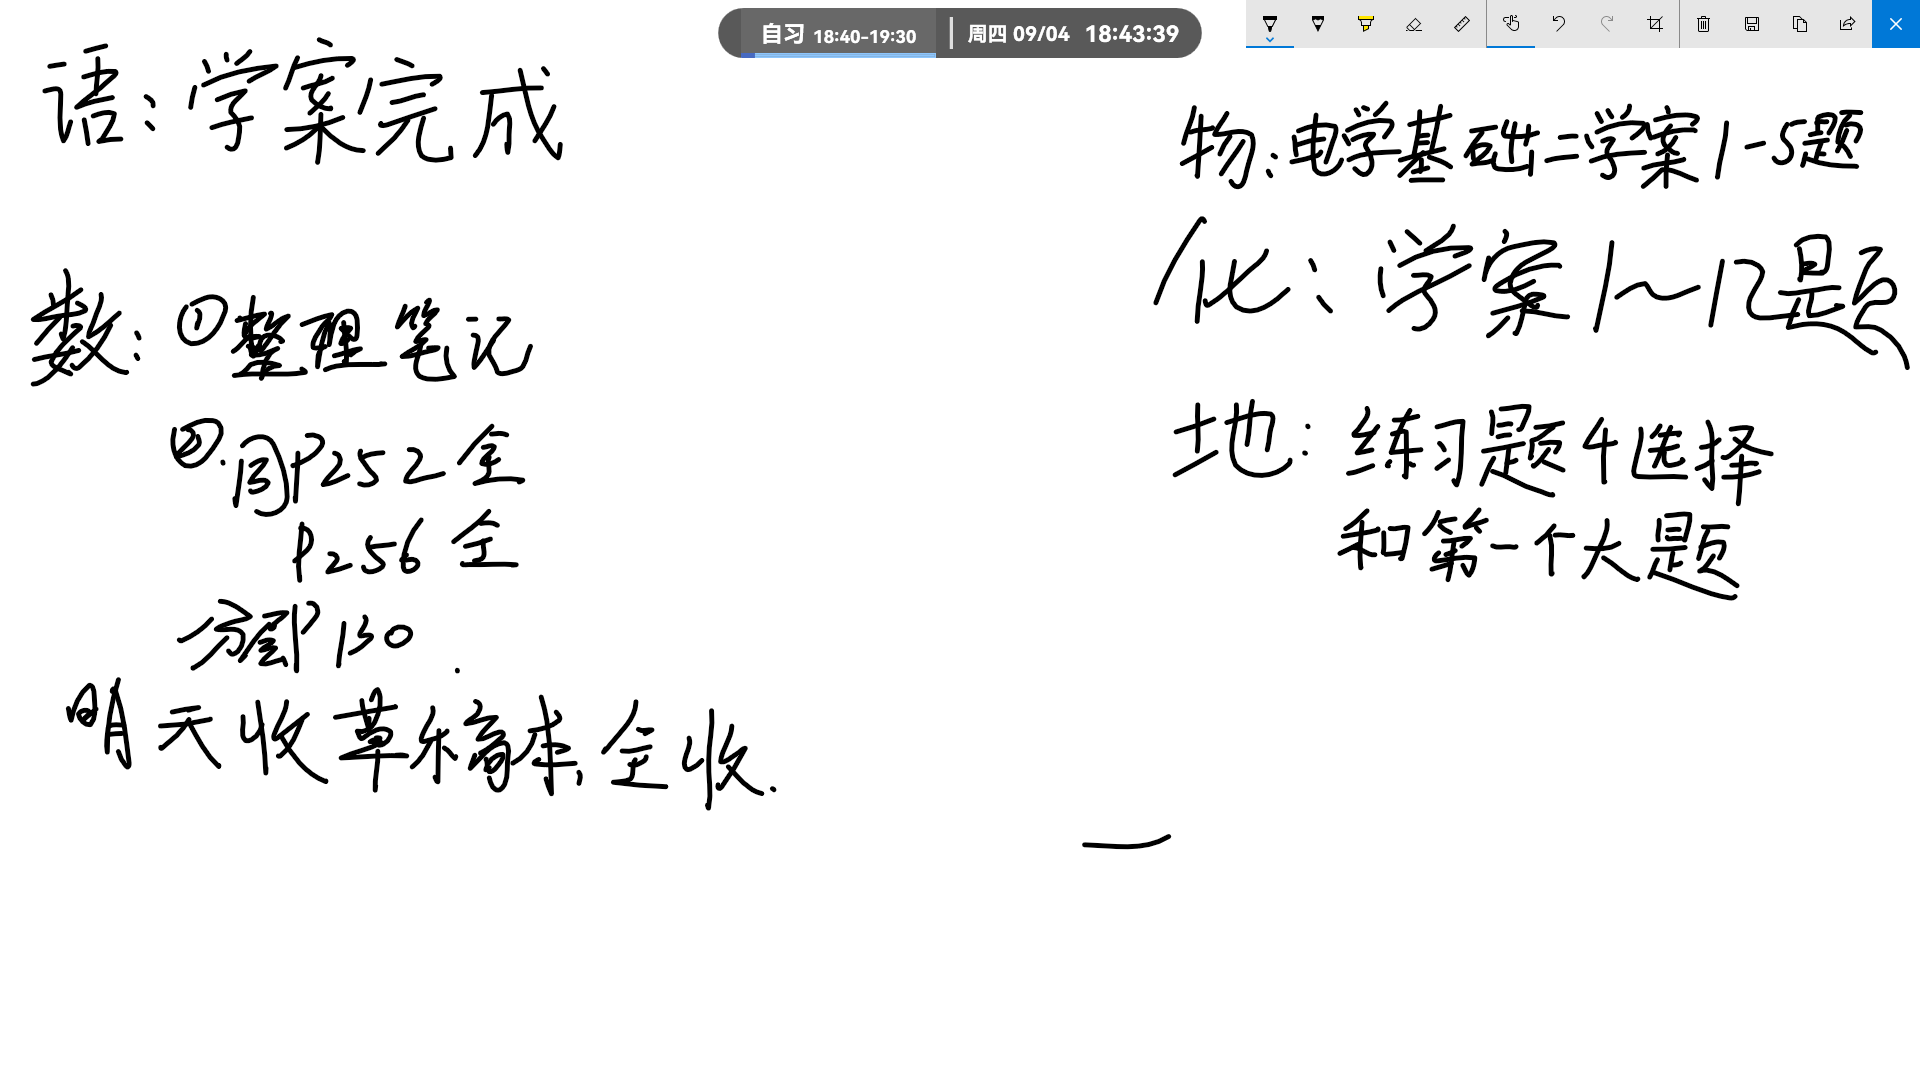 自习 18:40-19:30 周四 09/04 18:43:39
语：学案完成
数：①整理笔记
②.同P252全
P256全
分层P130.
明天收草稿本,全收.
物：电学基础二学案1-5题
化：学案1~12题
地：练习题4选择
和第一个大题